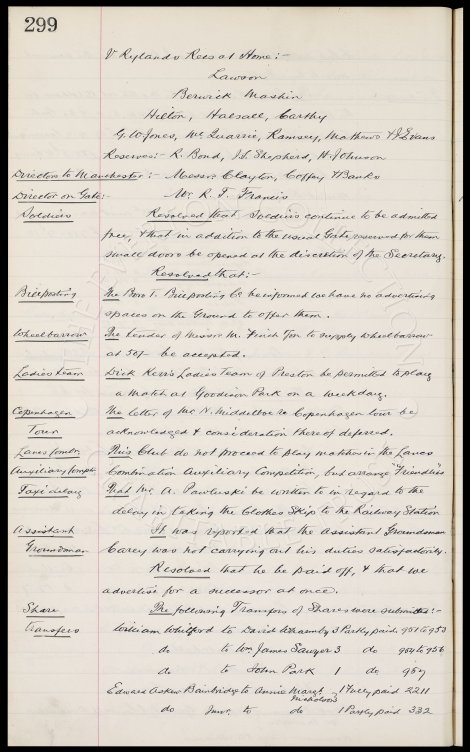 299
V Rylands Recs at Home:-
Lawson
Berwick Mashin
Hilton, Halsall, Carthy
G. W. Jones, McQuarrie, Ramsey, Mathews & J Evans
Reserves:- R. Bond, J. L. Shepherd, H. Johnson
Directors to Manchester:- Messrs Clayton, Coffey & Banks
Director on Gate:- Mr. R. T. Francis
Soldiers Resolved that Soldiers continue to be admitted
free, & that in addition to the usual Gate reserved for them
small doors be opened at the discretion of the Secretary.
Resolved that:-
Billposting The Boro T. Billposting Co be informed we have no advertising
spaces on the Ground to offer them.
Wheelbarrow The tender of Messrs M. Finch for to supply Wheelbarrow
at 50/- be accepted.
Ladies team Dick Kerr's Ladies Team of Preston be permitted to play
a match at Goodison Park on a weekday.
Copenhagen The letter of Mr N. Middelboe re Copenhagen tour be
Tour acknowledged & consideration thereof deferred.
Lancs Combn This Club do not proceed to play matches in the Lancs
Auxiliary Compt Combination Auxiliary Competition, but arrange "Friendlies"
Taxi delay That Mr A. Pawluski be written to in regard to the
delay in taking the Clothes Skips to the Railway Station
Assistant It was reported that the Assistant Groundsman
Groundsman Carey was not carrying out his duties satisfactorily.
Resolved that he be paid off, & that we
advertise for a successor at once.
Share The following Transfers of Shares were submitted:-
transfers William Whitford to David Kirby 3 Partly paid 951 to 953
do to Wm James Sawyer 3 do 954 to 956
do to John Park 1 do 957
Edward Askew Bainbridge to Annie Margt Nicholson 1 Fully paid 2211
do Junr. to do 1 Partly paid 332